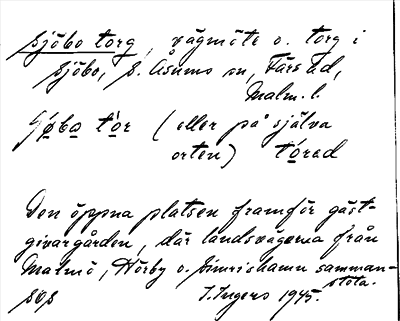 Sjöbo torg, vägmöte o. torg i
Sjöbo, S. Åsums sn, Färs hd,
Malm. l.
Sjöbo tor (eller på själva
orten) tórad
Den öppna platsen framför gäst-
givargården, där landsvägarna från
Malmö, Hörby o. Simrishamn samman-
stöta.
SOS I. Ingers 1945.